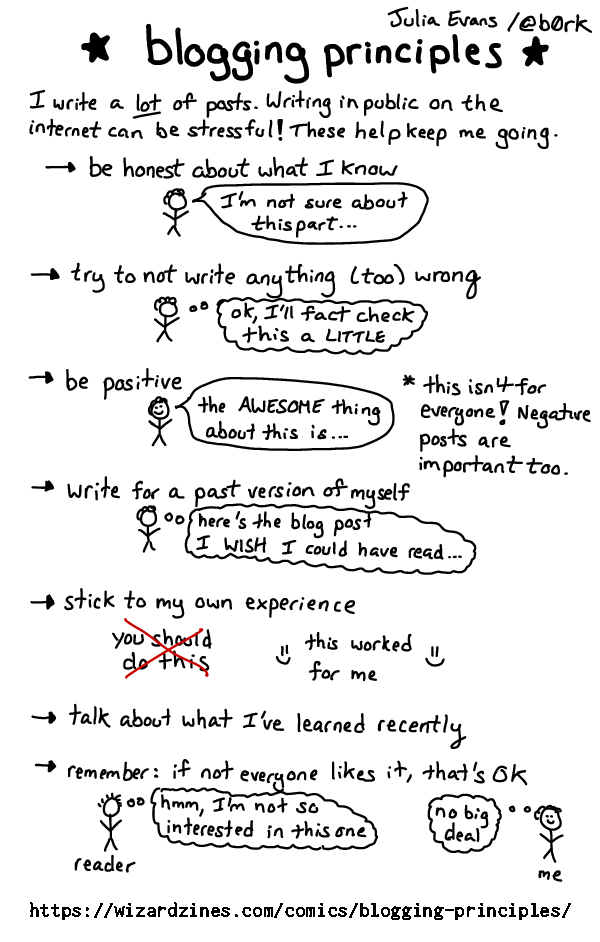 Julia Evans /@b0rk
★ blogging principles ★
I write a lot of posts. Writing in public on the
internet can be stressful! These help keep me going.
→ be honest about what I know
I'm not sure about
this part...
→ try to not write anything (too) wrong
ok, I'll fact check
this a LITTLE
→ be positive
the AWESOME thing
about this is...
* this isn't for
everyone! Negative
posts are
important too.
→ write for a past version of myself
here's the blog post
I WISH I could have read...
→ stick to my own experience
you should
do this
this worked
for me
→ talk about what I've learned recently
→ remember: if not everyone likes it, that's OK
hmm, I'm not so
interested in this one
reader
no big
deal
me
https://wizardzines.com/comics/blogging-principles/